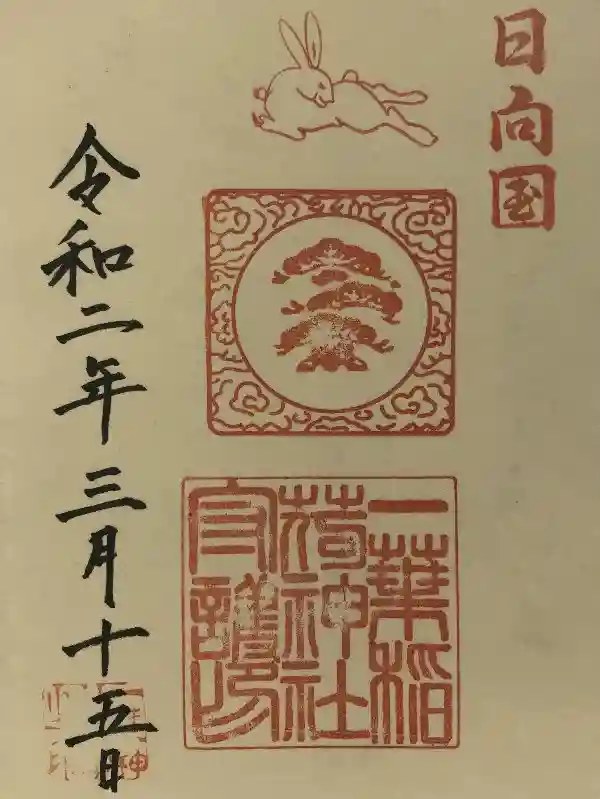 日向国
一葉稲
荷神社
守護印
令和二年三月十五日